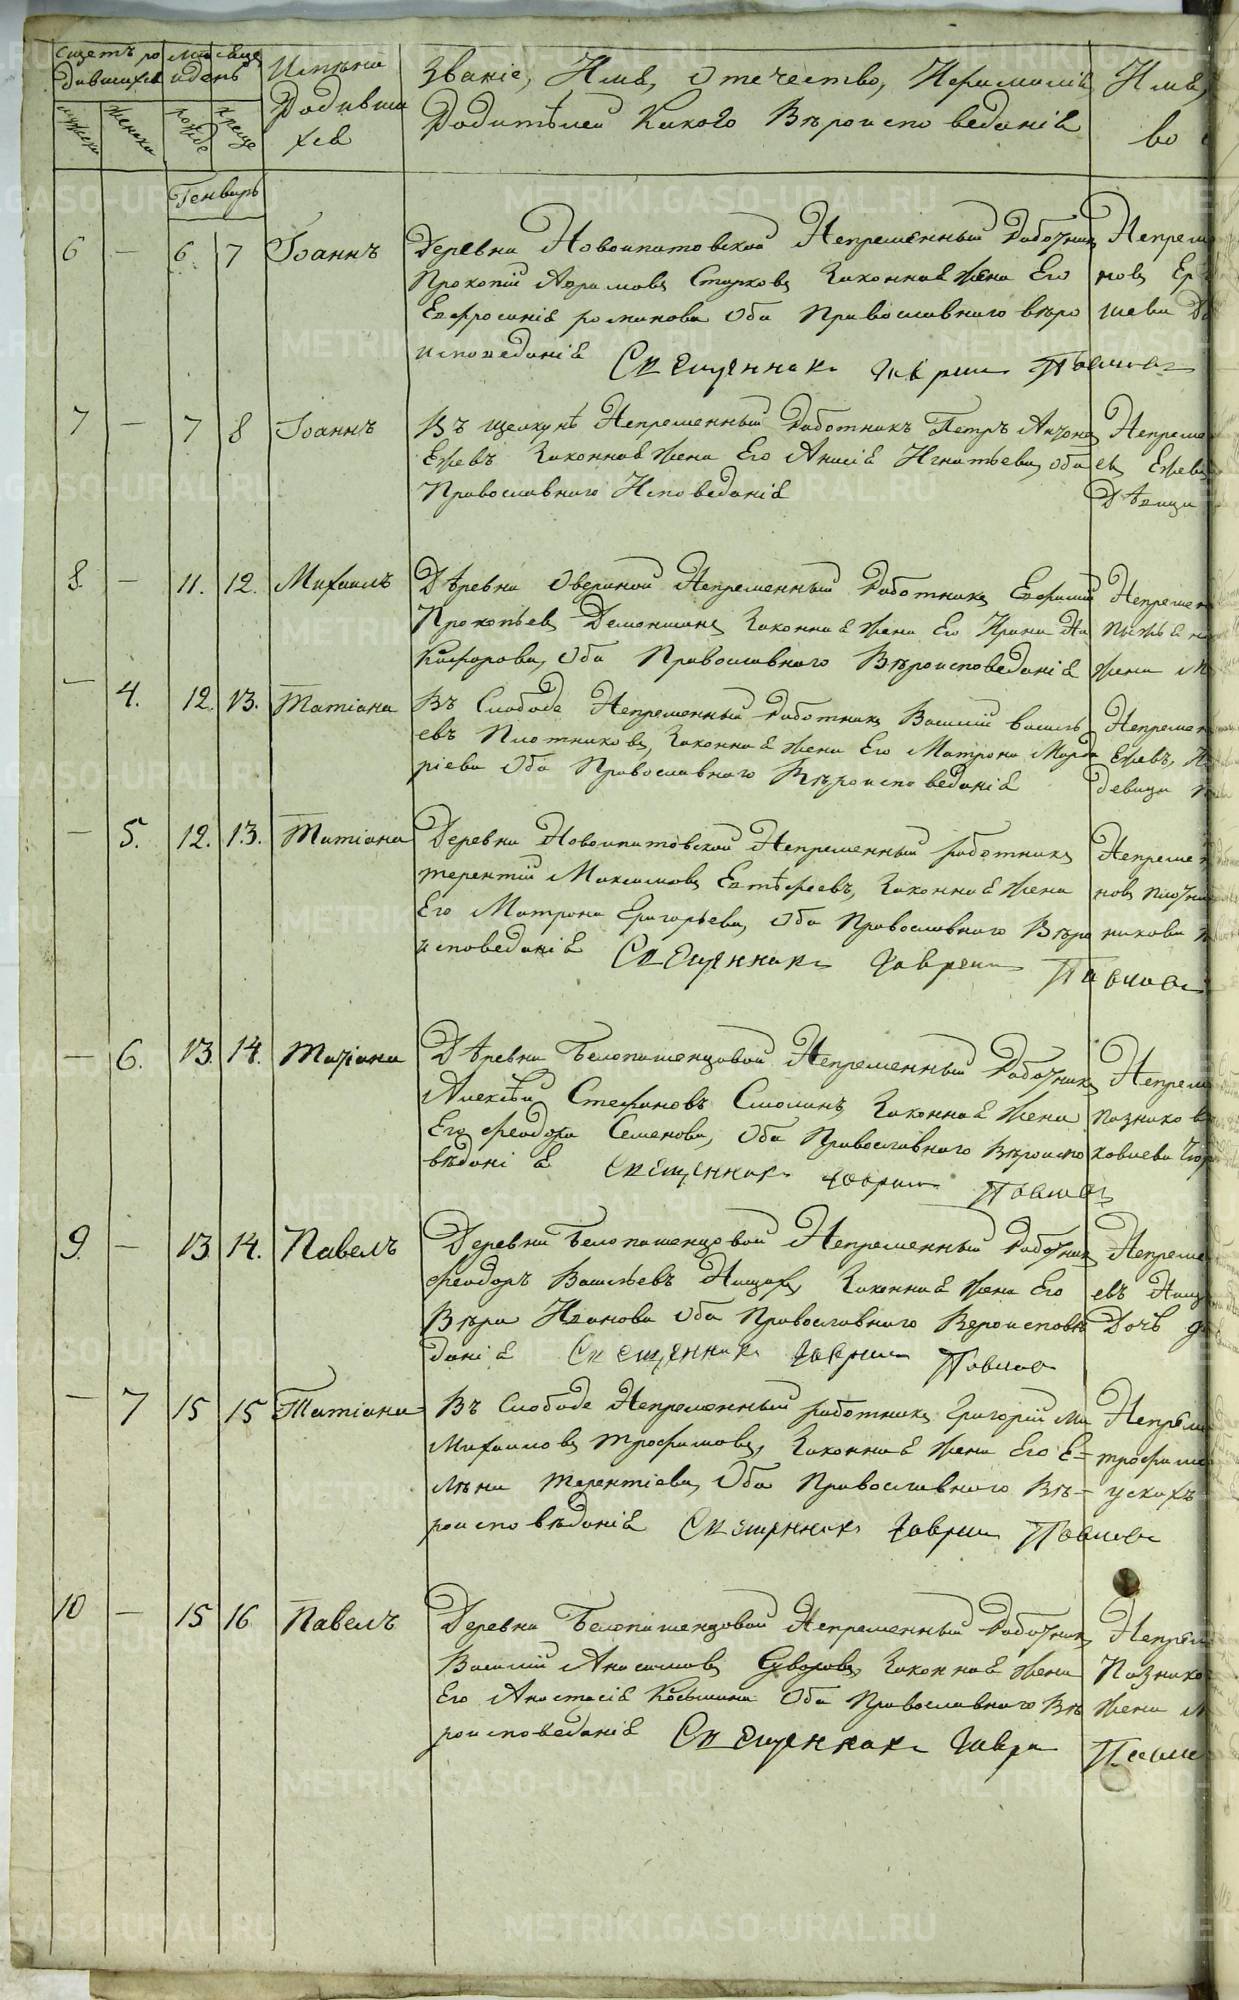 Счетъ ро
дившихся
мужска
женска
месяцъ
и день
рожде
креще
Имѣна
Родивши
хся
Званіе, Имя, Отечество, Ифамилія
Родитѣлей Какого Вѣроисповеданія
Имя,
во
Генварь
6 — 6. 7 Іоаннъ
Деревни Новоипатовской Непременный Работник
Прокопій Аврамовъ Старковъ Законная жена Его
Евфросинія романова Оба Православнаго вѣро
исповеданія Священникъ Гаврил Павлов
Непрем
новъ Ер
шева
7 — 7 8 Іоаннъ
Въ щелкунѣ Непременный Работникъ Петръ Антоно
Ежевъ Законная жена Его Анисія Игнатьева, оба
Православнаго Исповеданія
Непреме
въ Ежева
Дѣвица
8 — 11. 12. Михаилъ
Дѣревни Авериной Непременный Работникъ Евфимій
Прокопьевъ Демоншинъ Законная жена Его Ирина Ни
кифорова, Оба Православнаго Вѣроисповеданія
Непремен
жена М
— 4. 12. 13. Татіана
Въ Слободе Непременный Работникъ Василій василь
евъ Плотниковъ, Законная жена Его Матрона Марда
ріева Оба Православнаго Вѣроисповеданія
Непремен
Ежевъ,
девица
— 5. 12. 13. Татіана
Деревни Новоипатовской Непременный работникъ
терентій Максимовъ Евтѣфеевъ, Законная жена
Его Матрона Григорьева, Оба Православнаго Вѣро
исповеданія Священникъ Гавриил Павлов
Непреме
новъ плотни
никова
— 6. 13. 14. Татіана
Дѣревни Белопашенцовой Непременный Работникъ
Алексѣй Стефановъ Смолинъ, Законная жена
Его феодора Семенова, Оба Православнаго Вѣроиспо
вѣданія Священникъ Гаврил Павлов
Непрем
познико
9. — 13 14. Павелъ
Деревни Белопашенцовой Непременный Работник
феодоръ Васильевъ Пищовъ Законная жена Его
Вѣра Иванова Оба Православнаго Вероисповѣ
данія Священникъ Гаврил Павлов
Непреме
евъ
Дочь
— 7 15 15 Татіана
Въ Слободе Непременный работникъ Григорій Ми
Михаиловъ трофимовъ, Законная жена Его Е=
лѣна терентіева, Оба Православнаго Вѣ=
роисповѣданія Священникъ Гаврил Павлов
Непрем
трофим
10 — 15 16 Павелъ
Деревни Белопашенцовой Непременный Работникъ
Василій Анисимовъ Суворовъ Законная жена
Его Анастасія Косьмина Оба Православнаго Вѣ
роисповеданія Священникъ Гаври Павлов
Непрем
Познико
жена М
METRIKI.GASO-URAL.RU